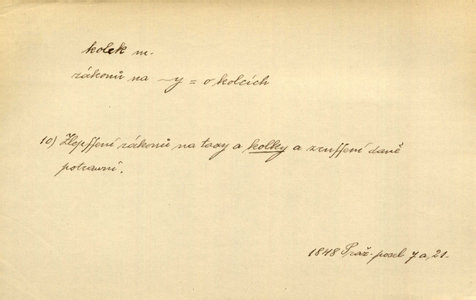 kolek m.
zákonů na ~y = o kolcích
10) Zlepssení zákonů na taxy a kolky a zrussení daně
potravní.
1848 Praž. posel 7a, 21.